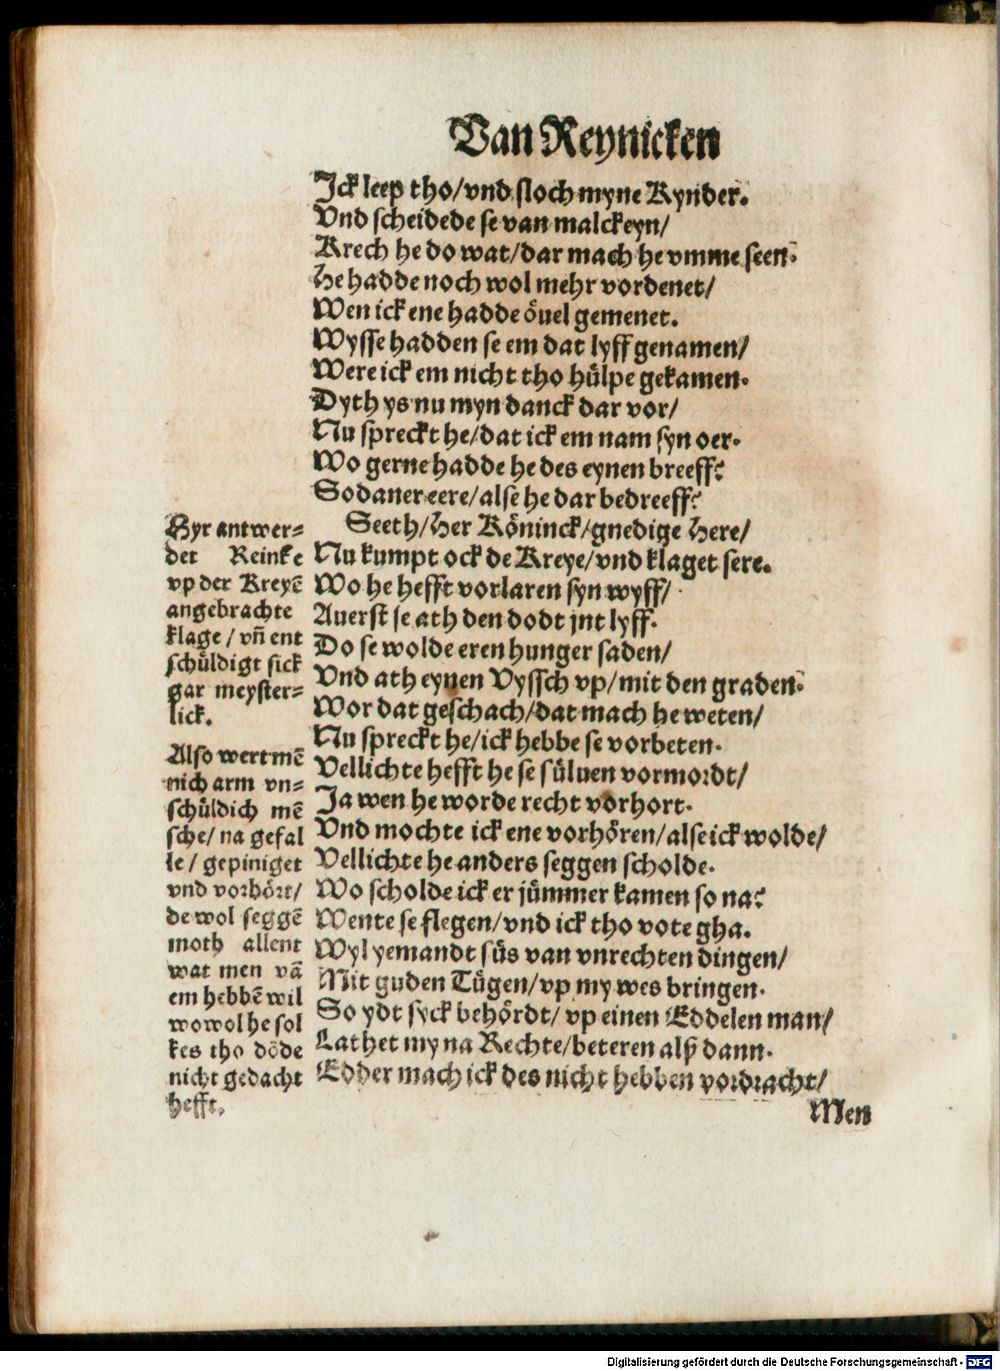 Van Reynicken
Jck leep tho/vnd sloch myne Kynder.
Vnd scheidede se van malckeyn/
Krech he do wat/dar mach he vmme seen.
He hadde noch wol mehr vordenet/
Wen ick ene hadde öuel gemenet.
Wysse hadden se em dat lyff genamen/
Were ick em nicht tho hülpe gekamen.
Dyth ys nu myn danck dar vor/
Nu spreckt he/dat ick em nam syn oer.
Wo gerne hadde he des eynen breeff?
Sodaner eere/alse he dar bedreeff?
Seeth/Her Köninck/gnedige Here/
Nu kumpt ock de Kreye/vnd klaget sere.
Wo he hefft vorlaren syn wyff/
Auerst se ath den dodt jnt lyff.
Do se wolde eren hunger saden/
Vnd ath eynen Vyssch vp/mit den graden.
Wor dat geschach/dat mach he weten/
Nu spreckt he/ick hebbe se vorbeten.
Vellichte hefft he se süluen vormordt/
Ja wen he worde recht vorhort.
Vnd mochte ick ene vorhören/alse ick wolde/
Vellichte he anders seggen scholde.
Wo scholde ick er jümmer kamen so na?
Wente se flegen/vnd ick tho vote gha.
Wyl yemandt süs van vnrechten dingen/
Mit guden Tügen/vp my wes bringen.
So ydt syck behördt/vp einen Eddelen man/
Lathet my na Rechte/beteren alß dann.
Edder mach ick des nicht hebben vordracht/
Men
Hyr antwer=
det Reinke
vp der Kreyē
angebrachte
klage/vn̄ ent
schüldigt sick
gar meyster=
lick.
Also wert mē
nich arm vn=
schüldich mē
sche/na gefal
le/gepiniget
vnd vorhört/
de wol seggē
moth allent
wat men vā
em hebbē wil
wowol he sol
kes tho döde
nicht gedacht
hefft.
Digitalisierung gefördert durch die Deutsche Forschungsgemeinschaft - DFG